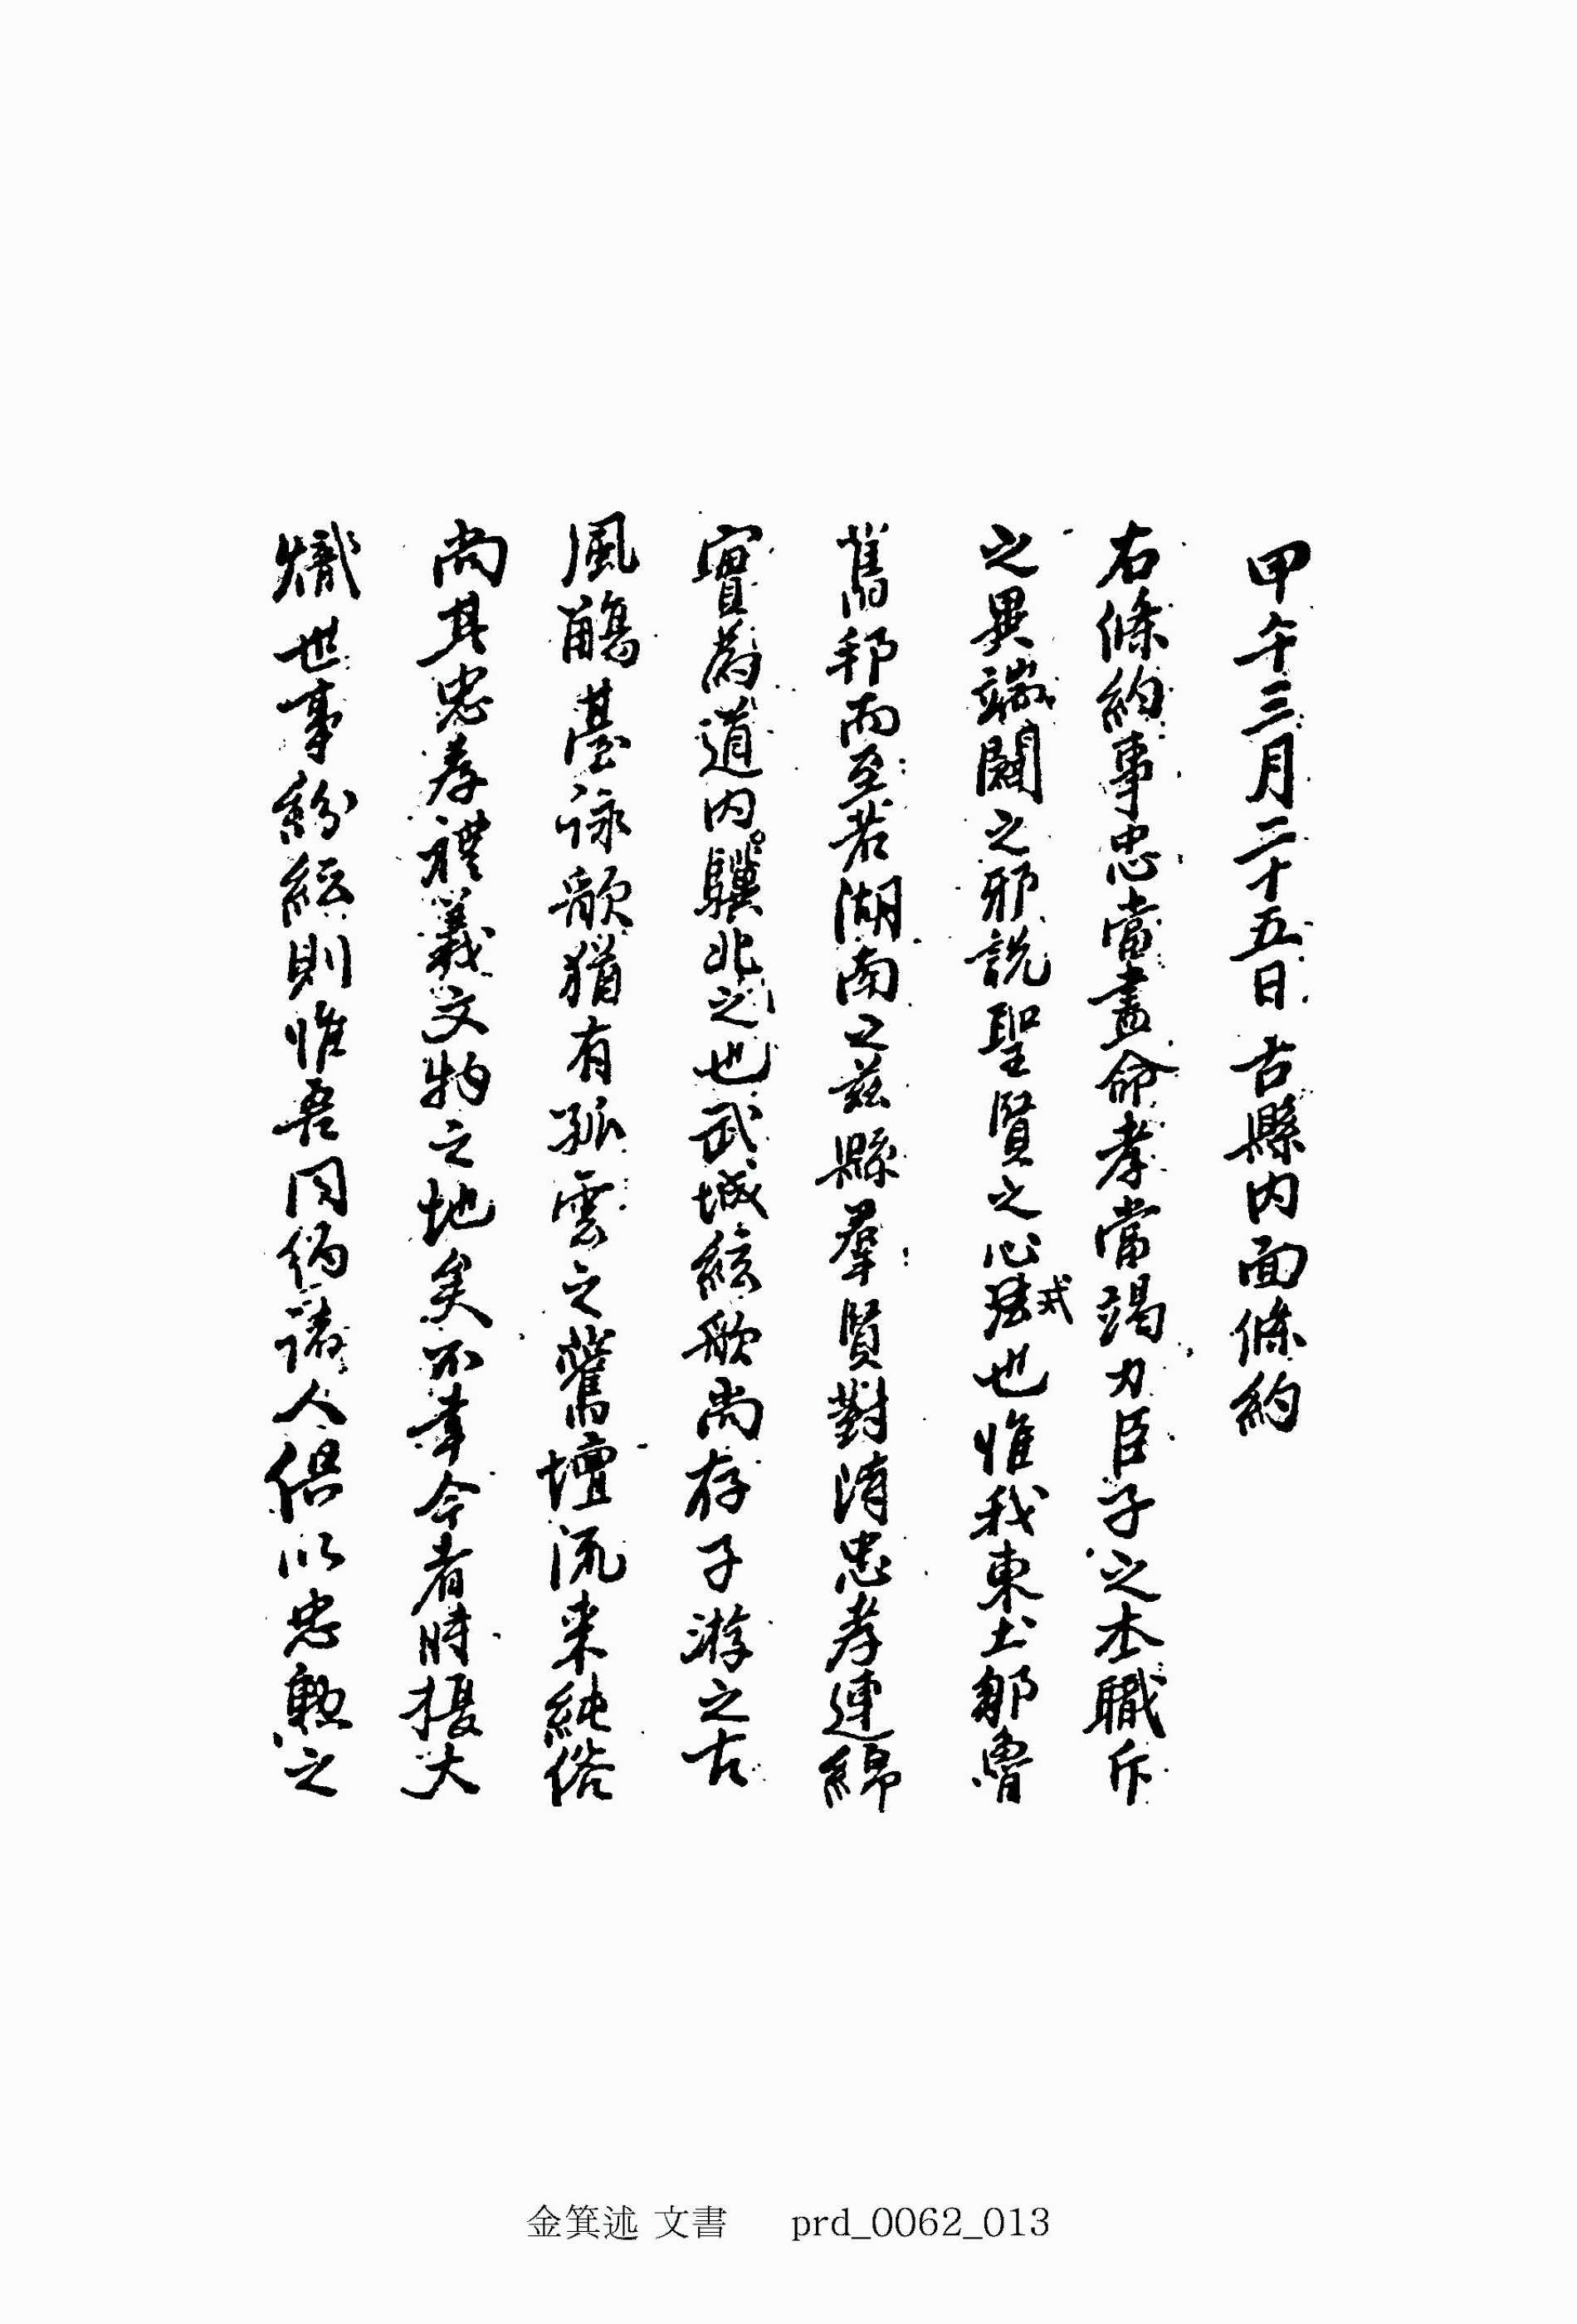 甲午三月二十五日 古縣內面條約
右條約事忠當盡命孝當竭力臣子之本職斥
之異端闢之邪說聖賢之心法式也惟我東土鄒魯
舊邦而至若湖南之茲縣羣賢對淸忠孝連綿
實爲道內驥北之也武城絃歌尚存子游之古
風觴臺詠歌猶有孤雲之舊壇流來純俗
尚其忠孝禮義文物之地矣不幸今者時擾大
熾世事紛紜則惟吾同約諸人俱以忠勳之
金箕述 文書 prd_0062_013